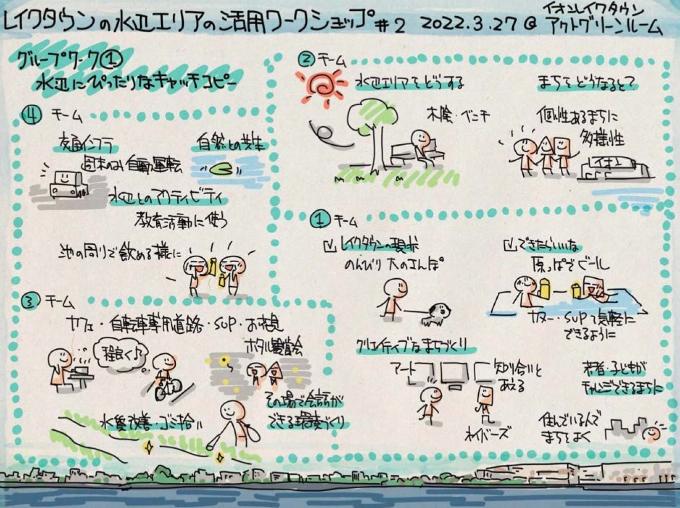 レイクタウンの水辺エリアの活用ワークショップ#2 2022.3.27@
イオンレイクタウン
アウトグリーンルーム
グループワーク①
水辺にぴったりなキャッチコピー
④チーム
交通インフラ
週末のみ自動運転
自然との共生
水辺とのアクティビティ
教育活動に使う
池の周りで飲める様に
②チーム
水辺エリアをどうする
木陰・ベンチ
まちをどうなると?
個性あるまちに
多様性
イオン
①チーム
レイクタウンの現状
のんびり 犬のさんぽ
できたらいいな
原っぱでビール
カヌー・SUPで気軽に
できるように
クリエイティブなまちづくり
アート
知り合いと
あえる
ネイバーズ
若者・子どもが
チャレンジできるまちに
住んでいる人で
まちをよく
③チーム
カフェ・自転車専用道路・SUP・お花見
程良く♪
ホタル鑑賞会
その場で会話が
できる環境づくり
水質改善・ゴミ拾い